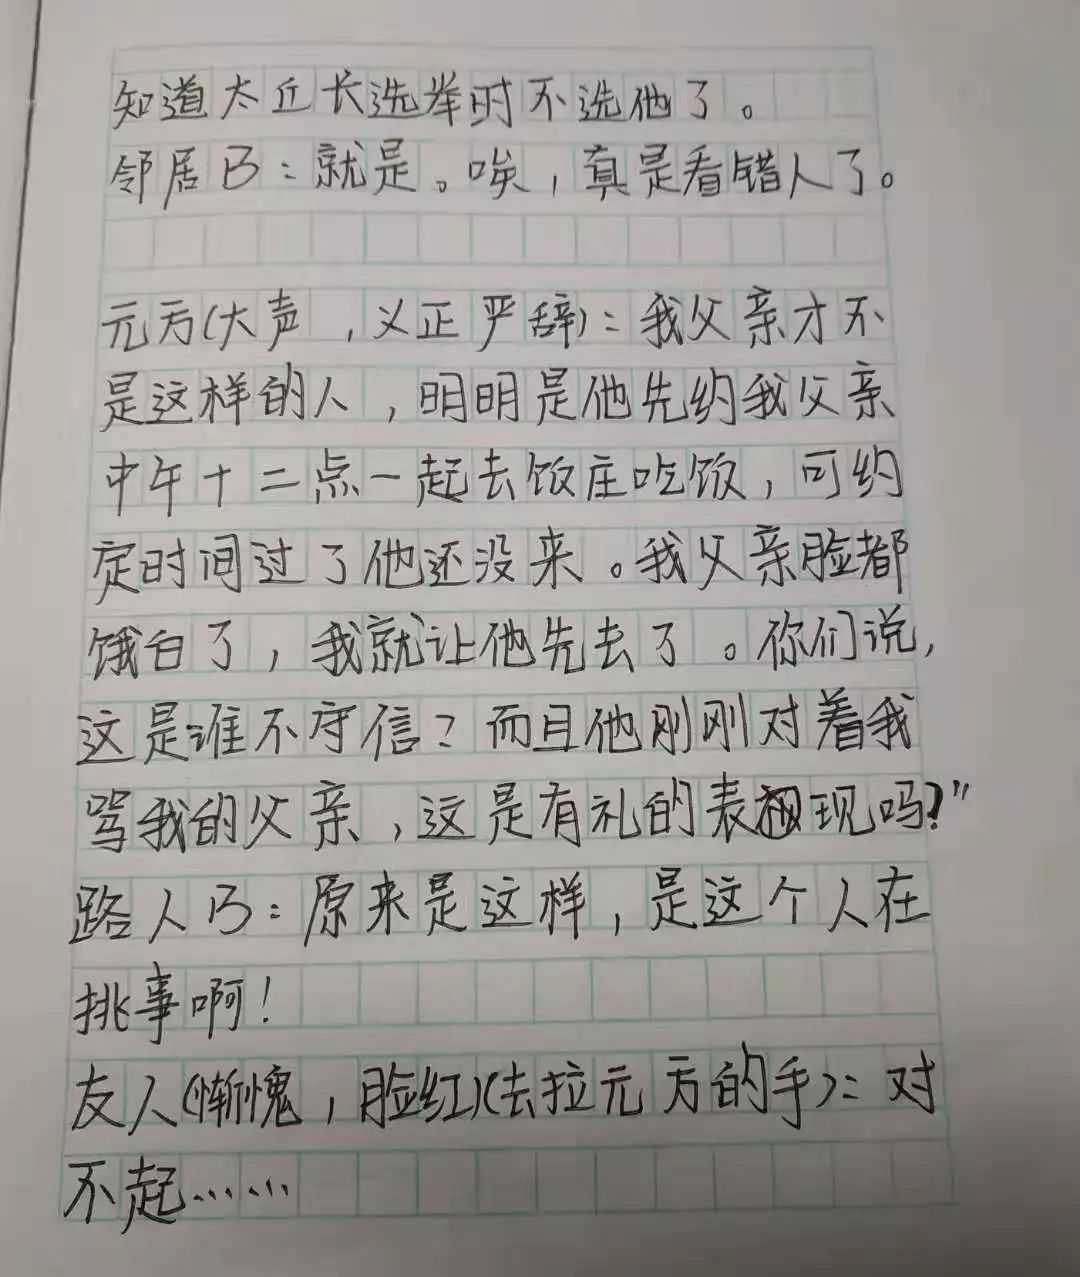 知道太丘长选举时不选他了。
邻居B：就是。唉，真是看错人了。
元方(大声，义正严辞)：我父亲才不
是这样的人，明明是他先约我父亲
中午十二点一起去饭庄吃饭，可约
定时间过了他还没来。我父亲脸都
饿白了，我就让他先去了。你们说，
这是谁不守信？而且他刚刚对着我
骂我的父亲，这是有礼的表现吗？”
路人B：原来是这样，是这个人在
挑事啊！
友人(惭愧，脸红)(去拉元方的手)：对
不起……